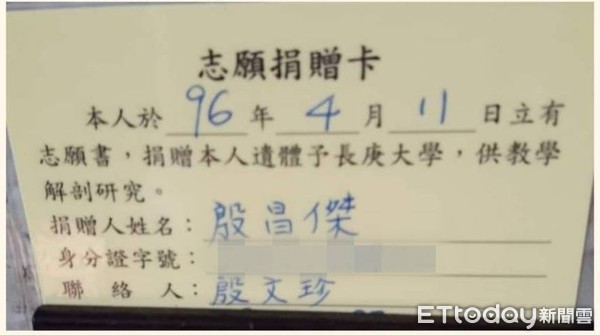 志願捐贈卡
本人於 96 年 4 月 11 日立有
志願書，捐贈本人遺體予長庚大學，供教學
解剖研究。
捐贈人姓名：殷昌傑
身分證字號：
聯絡人：殷文珍
ETtoday新聞雲